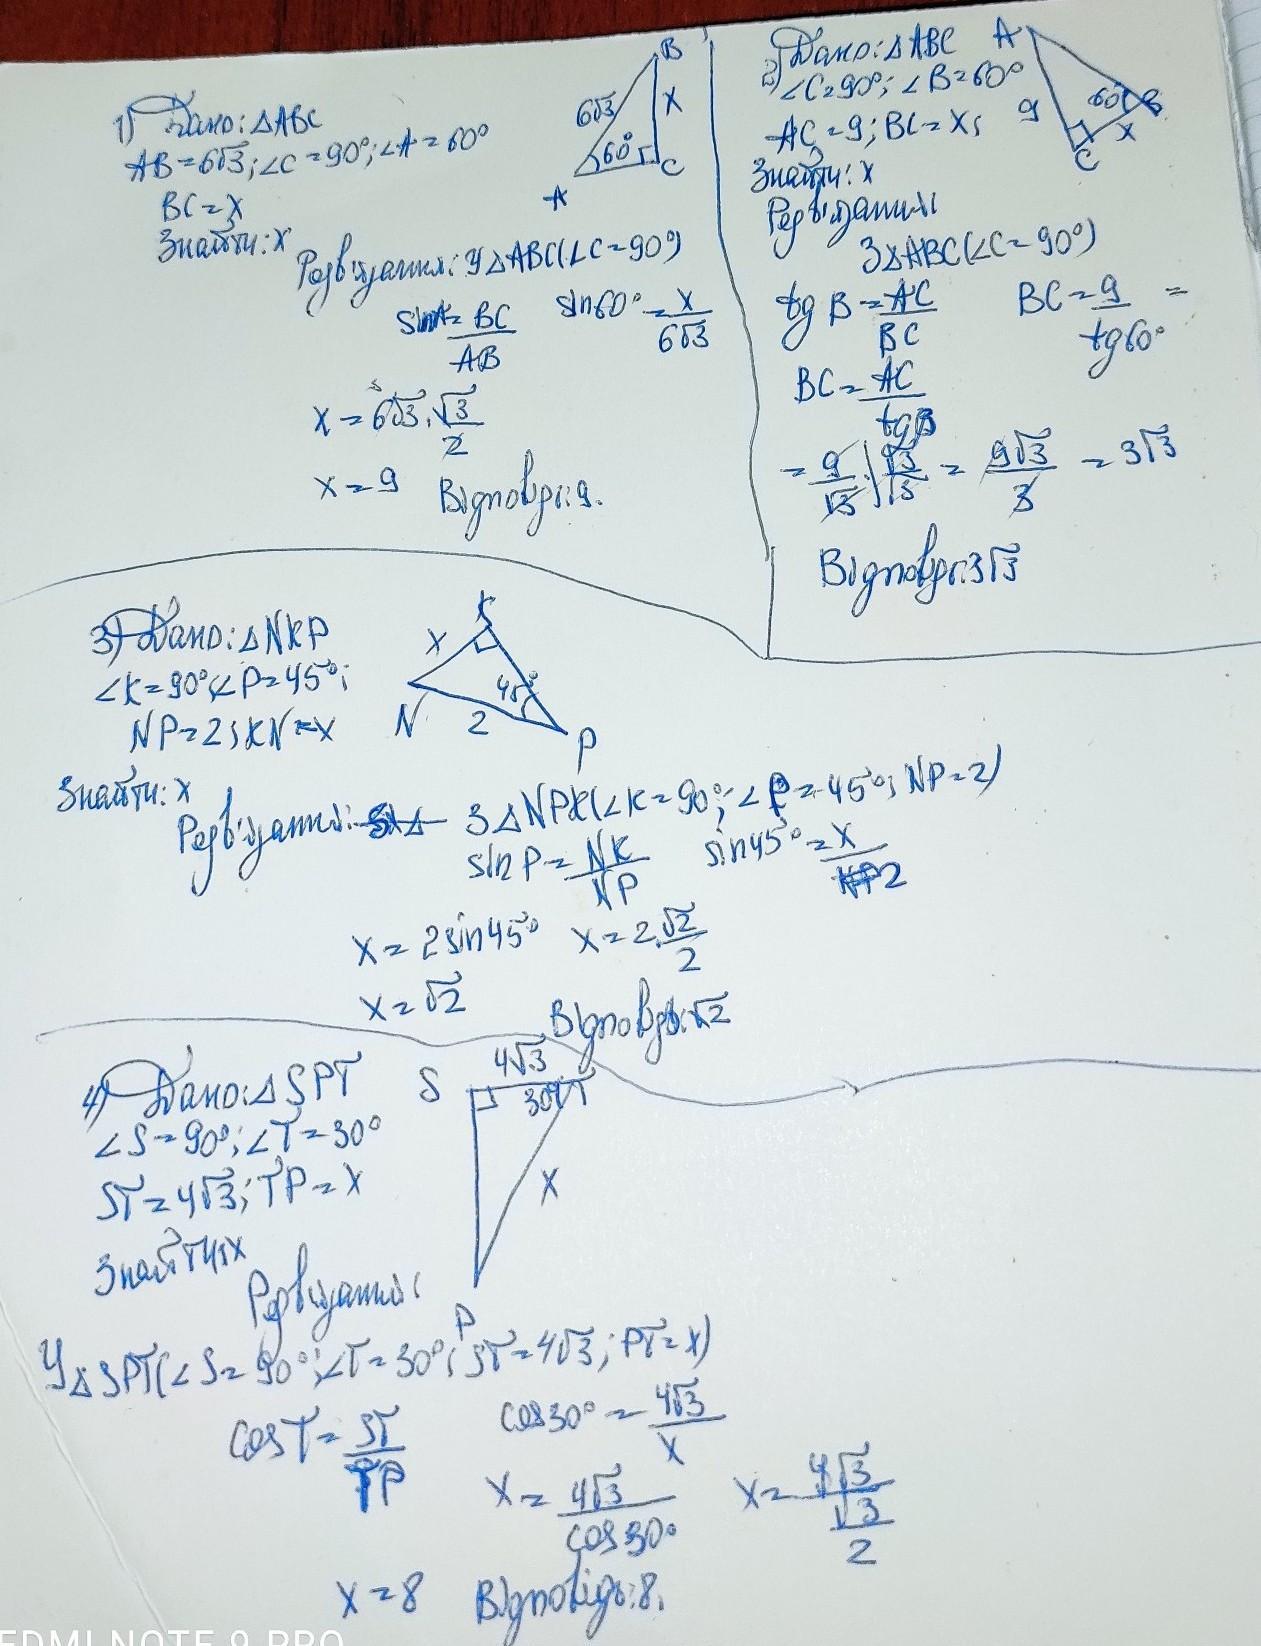 1) Дано: △ABC
AB=6√3; ∠C=90°; ∠A=60°
BC=x
Знайти: x
B
6√3
x
60°
C
A
Розв'язання: У △ABC (∠C=90°)
sinA = BC/AB sin60° = x/6√3
x = 6√3 · √3/2
x = 9 Відповідь: 9.
2) Дано: △ABC
∠C=90°; ∠B=60°
AC=9; BC=x;
Знайти: x
A
9
60°
B
x
C
Розв'язання:
З △ABC (∠C=90°)
tg B = AC/BC BC = 9/tg60° =
BC = AC/tgB
= 9/√3 · √3/√3 = 9√3/3 = 3√3
Відповідь: 3√3
3) Дано: △NKP
∠K=90°; ∠P=45°;
NP=2; KN=x
Знайти: x
K
x
45°
N
2
P
Розв'язання: З △NPK (∠K=90°; ∠P=45°; NP=2)
sinP = NK/NP sin45° = x/2
x = 2sin45° x = 2·√2/2
x = √2 Відповідь: √2
4) Дано: △SPT
∠S=90°; ∠T=30°
ST=4√3; TP=x
Знайти: x
S
4√3
30°
T
x
P
Розв'язання:
У △SPT (∠S=90°; ∠T=30°; ST=4√3; PT=x)
cosT = ST/TP cos30° = 4√3/x
x = 4√3/cos30° x = 4√3/(√3/2)
x = 8 Відповідь: 8.